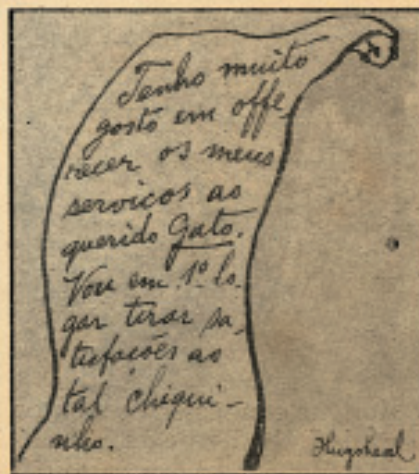 Tenho muito
gosto em offe
recer os meus
serviços ao
querido Gato.
Vou em 1º lo-
gar tirar sa-
tisfações ao
tal chiqui-
nho.